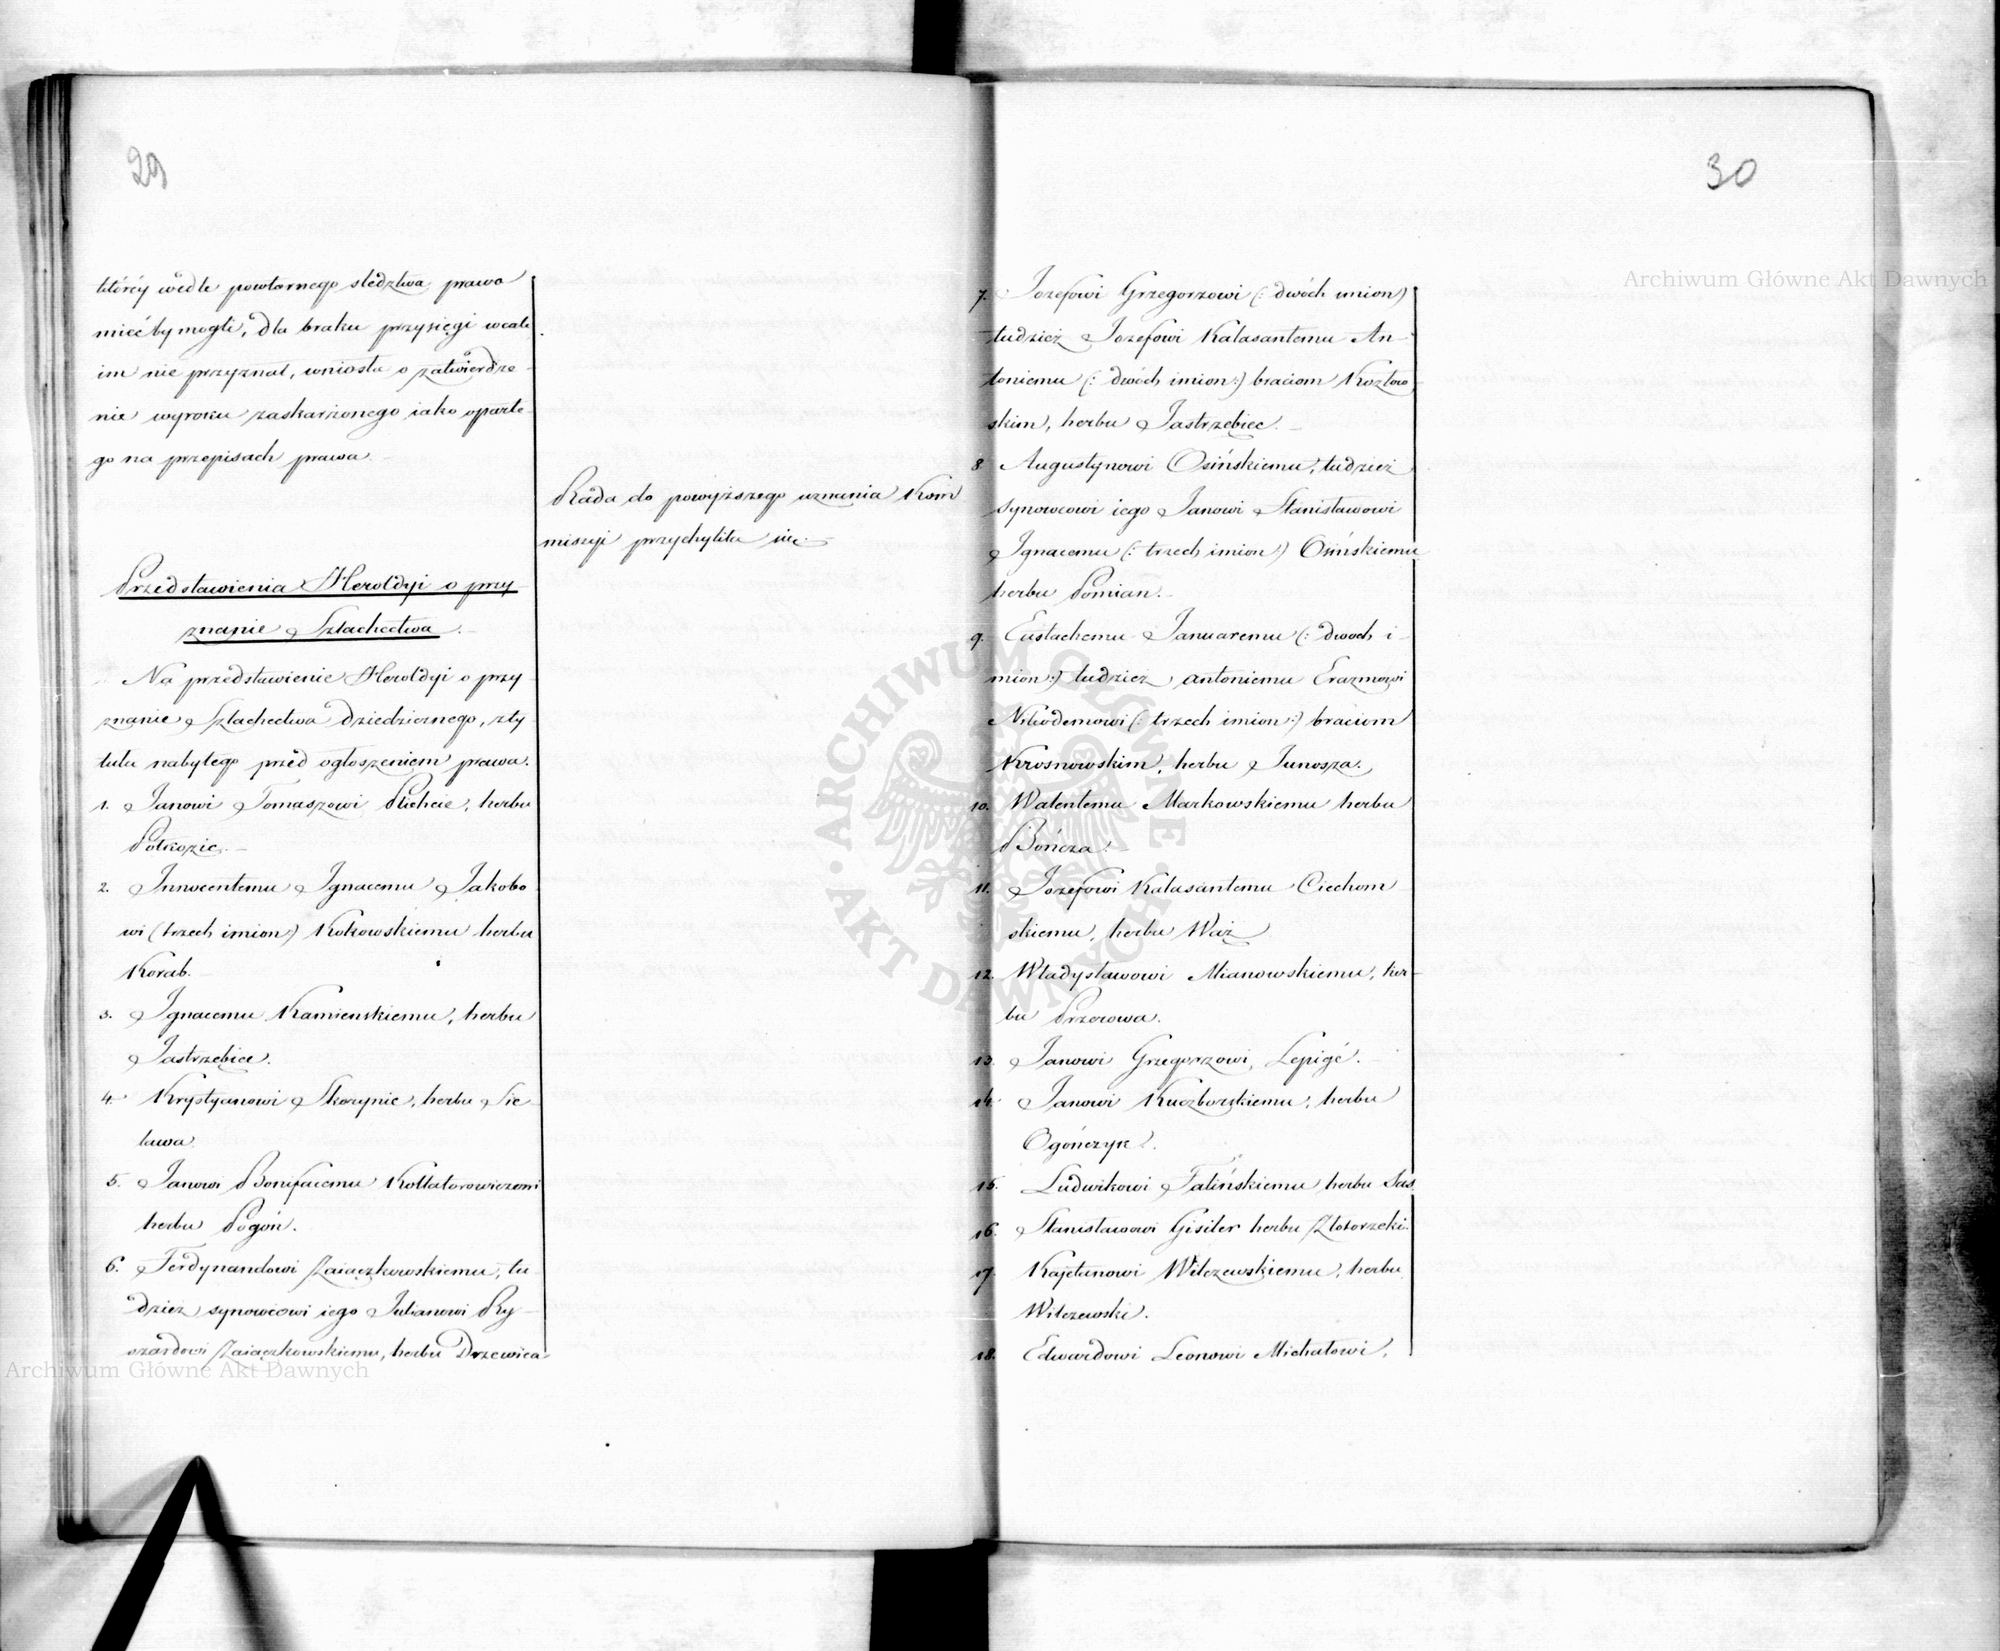 29
którey wedle powtornego sledztwa prawo
mieć by mogli, dla braku przysięgi wcale
im nie przyznał, wniosła o zatwierdze-
nie wyroku zaskarżonego iako oparte-
go na przepisach prawa.
Rada do powyższego uznania Kom
missyi przychyliła się.
Przedstawienia Heroldyi o przy-
znanie Szlachectwa.
Na przedstawienie Heroldyi o przy-
znanie Szlachectwa dziedzicznego, z ty-
tułu nabytego przed ogłoszeniem prawa.
1. Janowi Tomaszowi herbu
Półkozic.
2. Innocentemu Ignacemu Jakobo-
wi (trzech imion:) Kokowskiemu herbu
Korab.
3. Ignacemu Kamienskiemu, herbu
Jastrzębiec.
4. Krystyanowi Skorynie, herbu Sie-
lawa.
5. Janowi Bonifacemu Kołłatorowiczowi
herbu Pogoń.
6. Ferdynandowi Zaiączkowskiemu, tu-
dzież synowcowi iego Julianowi Ry-
szardowi Zaiączkowskiemu, herbu Drzewica
30
7. Jozefowi Grzegorzowi (: dwóch imion)
tudzież Jozefowi Kalasantemu An-
toniemu (: dwóch imion:) braciom Kozłow-
skim, herbu Jastrzębiec.
8. Augustynowi Osińskiemu, tudzież
synowcowi iego Janowi Stanisławowi
Ignacemu (: trzech imion:) Osińskiemu
herbu Pomian.
9. Eustachemu Januaremu (: dwoch i-
mion:) tudzież antoniemu Erazmowi
Nikodemowi (: trzech imion:) braciom
Krosnowskim, herbu Junosza.
10. Walentemu Markowskiemu herbu
Bończa.
11. Jozefowi Kalasantemu Ciechom-
skiemu, herbu Wąż
12. Władysławowi Mianowskiemu, her-
bu Przerowa.
13. Janowi Grzegorzowi, Lepigé.
14. Janowi Kuczborskiemu, herbu
Ogończyk.
15. Ludwikowi Talińskiemu herbu Sas
16. Stanisławowi Gisiler herbu Złotorzeki.
17. Kajetanowi Wilczewskiemu, herbu
Wilczewski.
18. Edwardowi Leonowi Michałowi,
Archiwum Główne Akt Dawnych
Archiwum Główne Akt Dawnych
ARCHIWUM GŁÓWNE · AKT DAWNYCH ·